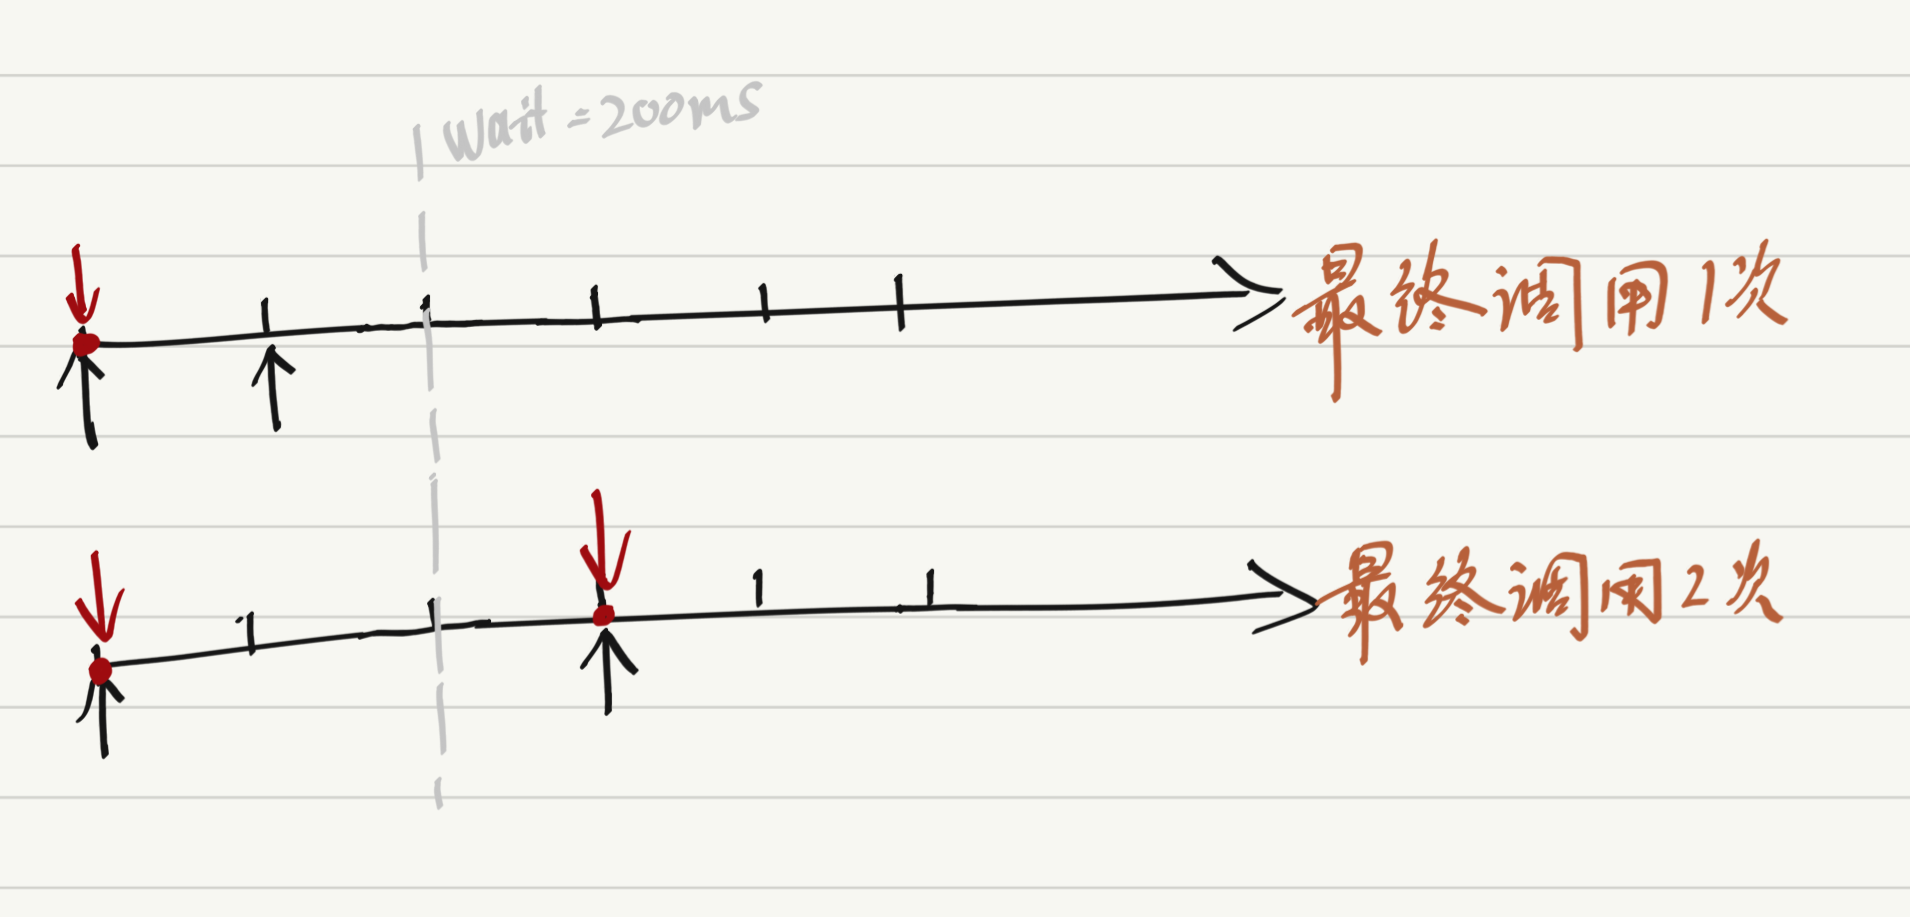 Wait = 200ms
最终调用1次
最终调用2次